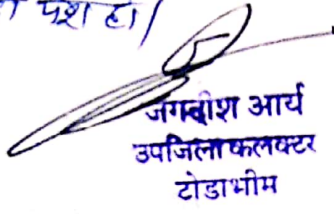 पेश हो/
जगदीश आर्य
उपजिला कलक्टर
टोडाभीम